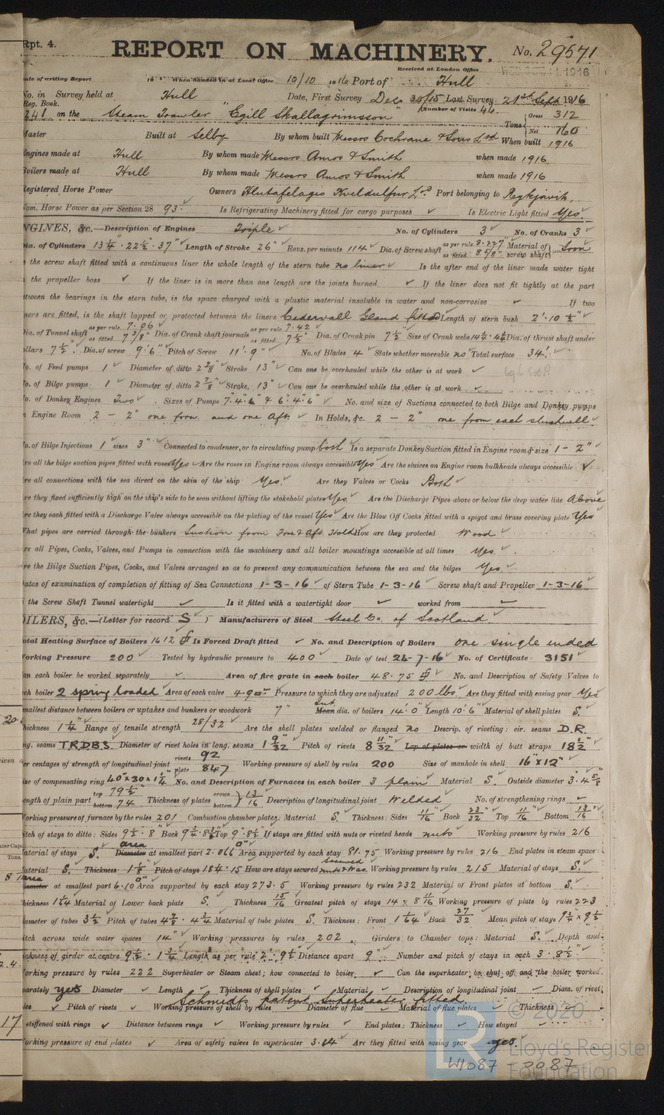 Rpt. 4.
REPORT ON MACHINERY. No. 29571
Received at London Office
Date of writing Report 191 When handed in at Local Office 10/10 1916 Port of Hull
No. in Survey held at Hull Date, First Survey Dec 30/15 Last Survey 21st Sept 1916
Reg. Book. (Number of Visits 44
241 on the Steam Trawler "Egill Skallagrimsson" Tons Gross 312 Net 160
Master Built at Selby By whom built Messrs Cochrane & Sons Ltd When built 1916
Engines made at Hull By whom made Messrs Amos & Smith when made 1916
Boilers made at Hull By whom made Messrs Amos & Smith when made 1916
Registered Horse Power Owners Hlutafelagio Kveldulfur Ltd Port belonging to Reykjavik
Nom. Horse Power as per Section 28 93 Is Refrigerating Machinery fitted for cargo purposes ✓ Is Electric Light fitted Yes
ENGINES, &c.—Description of Engines Triple No. of Cylinders 3 No. of Cranks 3
Dia. of Cylinders 13¼ . 22½ . 37" Length of Stroke 26" Revs. per minute 114 Dia. of Screw shaft as per rule 8.227 as fitted 8⅝" Material of screw shaft Iron
Is the screw shaft fitted with a continuous liner the whole length of the stern tube no liner Is the after end of the liner made water tight
in the propeller boss ✓ If the liner is in more than one length are the joints burned ✓ If the liner does not fit tightly at the part
between the bearings in the stern tube, is the space charged with a plastic material insoluble in water and non-corrosive ✓ If two
liners are fitted, is the shaft lapped or protected between the liners Cedervall Gland fitted Length of stern bush 2'-10½"
Dia. of Tunnel shaft as per rule 7.06 as fitted 7⅞" Dia. of Crank shaft journals as per rule 7.42 as fitted 7½" Dia. of Crank pin 7½" Size of Crank webs Dia. of thrust shaft under
collars 7½" Dia. of screw 9'.6" Pitch of Screw 11'.9" No. of Blades 4 State whether moveable no Total surface 34
No. of Feed pumps 1 Diameter of ditto 2⅞" Stroke 13" Can one be overhauled while the other is at work ✓
No. of Bilge pumps 1 Diameter of ditto 2⅞" Stroke 13" Can one be overhauled while the other is at work ✓
No. of Donkey Engines Two Sizes of Pumps 7.4.6 & 6.4.6 No. and size of Suctions connected to both Bilge and Donkey pumps
In Engine Room 2 - 2" one forw. and one Aft. In Holds, &c. 2 - 2" one from each slushwell
No. of Bilge Injections 1 sizes 3" Connected to condenser, or to circulating pump both Is a separate Donkey Suction fitted in Engine room & size 1 - 2"
Are all the bilge suction pipes fitted with roses Yes Are the roses in Engine room always accessible Yes Are the sluices on Engine room bulkheads always accessible ✓
Are all connections with the sea direct on the skin of the ship Yes Are they Valves or Cocks Both
Are they fixed sufficiently high on the ship's side to be seen without lifting the stokehold plates Yes Are the Discharge Pipes above or below the deep water line Above
Are they each fitted with a Discharge Valve always accessible on the plating of the vessel Yes Are the Blow Off Cocks fitted with a spigot and brass covering plate Yes
What pipes are carried through the bunkers Suction from Fore & Aft Holds How are they protected Wood
Are all Pipes, Cocks, Valves, and Pumps in connection with the machinery and all boiler mountings accessible at all times Yes
Are the Bilge Suction Pipes, Cocks, and Valves arranged so as to prevent any communication between the sea and the bilges Yes
Dates of examination of completion of fitting of Sea Connections 1-3-16 of Stern Tube 1-3-16 Screw shaft and Propeller 1-3-16
Is the Screw Shaft Tunnel watertight Is it fitted with a watertight door ✓ worked from
BOILERS, &c.—(Letter for record S) Manufacturers of Steel Steel Co. of Scotland
Total Heating Surface of Boilers 1612 Is Forced Draft fitted ✓ No. and Description of Boilers one single ended
Working Pressure 200 Tested by hydraulic pressure to 400 Date of test 26-7-16 No. of Certificate 3151
Can each boiler be worked separately ✓ Area of fire grate in each boiler 48.75 No. and Description of Safety Valves to
each boiler 2 spring loaded Area of each valve 4.90 Pressure to which they are adjusted 200 lbs Are they fitted with easing gear Yes
Smallest distance between boilers or uptakes and bunkers or woodwork 7" Mean dia. of boilers 14'.0" Length 10'.6" Material of shell plates S
Thickness 1¼" Range of tensile strength 28/32 Are the shell plates welded or flanged no Descrip. of riveting: cir. seams D.R
long. seams T.R.D.B.S. Diameter of rivet holes in long. seams 1 9/32 Pitch of rivets 8 11/32 Lap of plates or width of butt straps 18½"
Per centages of strength of longitudinal joint rivets 92 plate 84.7 Working pressure of shell by rules 200 Size of manhole in shell 16" x 12"
Size of compensating ring 40 x 30 x 1¼ No. and Description of Furnaces in each boiler 3 plain Material S. Outside diameter
Length of plain part top 79½" bottom 74 Thickness of plates crown bottom 13/16 Description of longitudinal joint Welded No. of strengthening rings
Working pressure of furnace by the rules 201 Combustion chamber plates: Material S Thickness: Sides 11/16 Back 23/32 Top 11/16 Bottom 13/16
Pitch of stays to ditto: Sides 9½ . 8 Back Top 9 . 8½ If stays are fitted with nuts or riveted heads nuts Working pressure by rules 216
Material of stays S. area Diameter at smallest part 2.066 Area supported by each stay 81.75 Working pressure by rules 216 End plates in steam space
Material S. Thickness 1⅛ Pitch of stays 18¼ . 15 How are stays secured Working pressure by rules 215 Material of stays S.
area Diameter at smallest part 6.10 Area supported by each stay 273.5 Working pressure by rules 232 Material of Front plates at bottom S.
Thickness Material of Lower back plate S. Thickness 15/16 Greatest pitch of stays Working pressure of plate by rules 223
Diameter of tubes 3½ Pitch of tubes Material of tube plates S. Thickness: Front Back 27/32 Mean pitch of stays
Pitch across wide water spaces 14" Working pressures by rules 202 Girders to Chamber tops: Material S. Depth and
thickness of girder at centre 9½ . 1¾ Length as per rule 2'.9½ Distance apart 9" Number and pitch of stays in each 3 . 8½
Working pressure by rules 222 Superheater or Steam chest; how connected to boiler ✓ Can the superheater be shut off and the boiler worked
separately yes Diameter ✓ Length Thickness of shell plates ✓ Material Description of longitudinal joint Diam. of rivet
holes ✓ Pitch of rivets Working pressure of shell by rules Diameter of flue Material of flue plates Thickness
Schmidts patent Superheater fitted
If stiffened with rings ✓ Distance between rings ✓ Working pressure by rules End plates: Thickness How stayed
Working pressure of end plates ✓ Area of safety valves to superheater 3.14 Are they fitted with easing gear yes
© 2020
Lloyd's Register
Foundation
W1087 - 0087